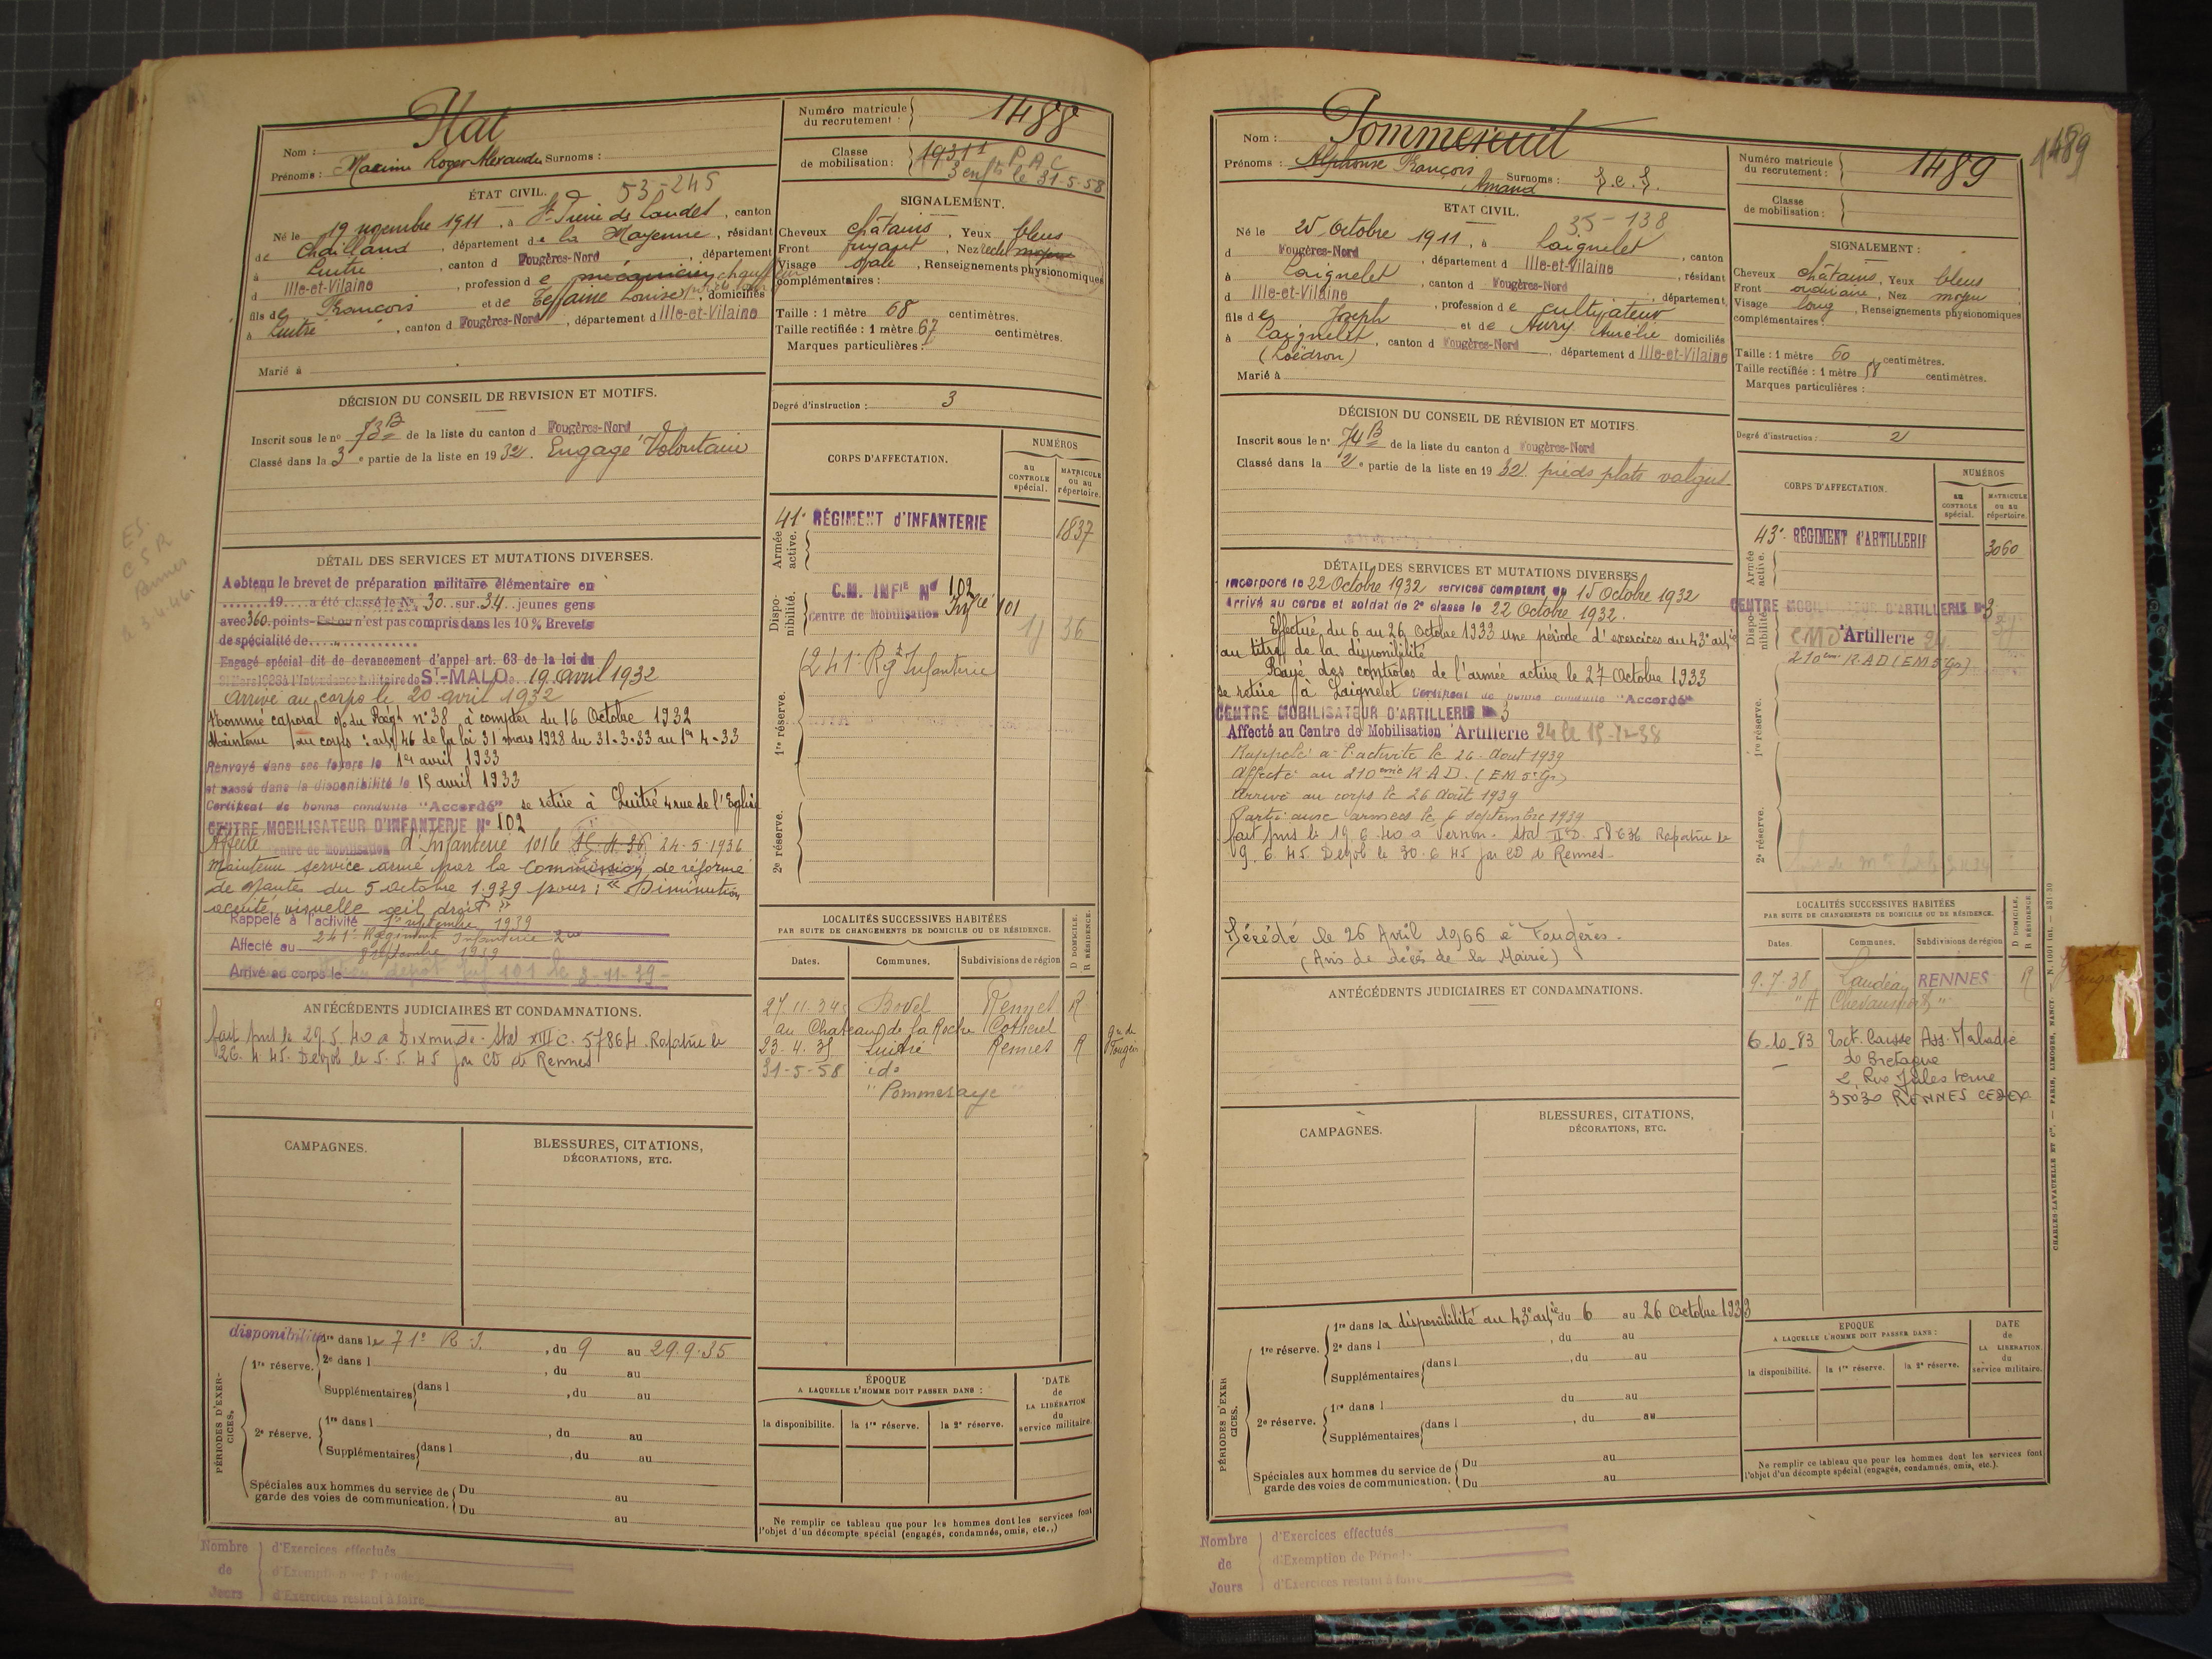 Nom :
Prénoms : Maxime Roger Alexandre Surnoms :
Numéro matricule du recrutement : 1488
Classe de mobilisation : 1931
P.A.C
3 enfts le 31-5-58
ÉTAT CIVIL.
53-245
Né le 19 novembre 1911, à St Pierre des Landes, canton
de Chailland, département de la Mayenne, résidant
à Luitré, canton d Fougères-Nord, département
d Ille-et-Vilaine, profession de mécanicien
fils de François et de Louise, domiciliés
à Luitré, canton d Fougères-Nord, département d Ille-et-Vilaine
Marié à
SIGNALEMENT.
Cheveux châtains, Yeux bleus
Front fuyant, Nez rectel moyen
Visage ovale, Renseignements physionomiques
complémentaires :
Taille : 1 mètre 68 centimètres.
Taille rectifiée : 1 mètre 67 centimètres.
Marques particulières :
Degré d'instruction : 3
DÉCISION DU CONSEIL DE REVISION ET MOTIFS.
Inscrit sous le no 73 B de la liste du canton d Fougères-Nord
Classé dans la 3e partie de la liste en 1932. Engagé Volontaire
CORPS D'AFFECTATION.
NUMÉROS
au CONTROLE spécial.
MATRICULE ou au répertoire.
Armée active.
41e RÉGIMENT d'INFANTERIE 1837
Disponibilité.
C.M. INFie No 102
Centre de Mobilisation Infie 101
36
1re réserve.
241e Rgt Infanterie
2e réserve.
DÉTAIL DES SERVICES ET MUTATIONS DIVERSES.
A obtenu le brevet de préparation militaire élémentaire en
19 a été classé le No 30 sur 34 jeunes gens
avec 360 points- Est ou n'est pas compris dans les 10 % Brevets
de spécialité de
Engagé spécial dit de devancement d'appel art. 63 de la loi du
31 Mars 1928 à l'Intendance Militaire de ST-MALO 19 avril 1932
arrivé au corps le 20 avril 1932
Nommé caporal o/ du Régt no 38 à compter du 16 Octobre 1932
Maintenu au corps : art 46 de la loi 31 mars 1928 du 31-3-33 au 14-4-33
Renvoyé dans ses foyers le 1er avril 1933
et passé dans la disponibilité le 15 avril 1933
Certificat de bonne conduite "Accordé" se retire à Luitré 4 rue de l'Eglise
CENTRE MOBILISATEUR D'INFANTERIE No 102
Affecté Centre de Mobilisation d'Infanterie 101 le 24-5-1936
Maintenu service armé par la Commission de réforme
de Nantes du 5 octobre 1939 pour : « Diminution
acuité visuelle œil droit »
Rappelé à l'activité 1er septembre 1939
Affecté au 241e Régiment Infanterie
Arrivé au corps le 8 septembre 1939
dépôt Inf 101 le 8-11-39
ANTÉCÉDENTS JUDICIAIRES ET CONDAMNATIONS.
Fait pris le 29.5.40 à Dixmude. Stal XIIIC. 57864. Rapatrié le
26.4.45. Démob le 5.5.45 par CD de Rennes
LOCALITÉS SUCCESSIVES HABITÉES
PAR SUITE DE CHANGEMENTS DE DOMICILE OU DE RÉSIDENCE.
Dates. Communes. Subdivisions de région D DOMICILE. R RÉSIDENCE.
27.11.34 Bovel Rennes R
au Chateau de la Roche Cotherel
23.4.35 Luitré Rennes R
31-5-58 ido
"Pommesaye"
CAMPAGNES.
BLESSURES, CITATIONS,
DÉCORATIONS, ETC.
PÉRIODES D'EXERCICES.
disponibilité 1re dans le 71e R.I., du 9 au 29.9.35
1re réserve. 2e dans l , du au
Supplémentaires dans l , du au
2e réserve. 1re dans l , du au
Supplémentaires dans l , du au
Spéciales aux hommes du service de garde des voies de communication. Du au
Du au
ÉPOQUE
A LAQUELLE L'HOMME DOIT PASSER DANS :
la disponibilité. la 1re réserve. la 2e réserve.
DATE de LA LIBÉRATION du service militaire.
Ne remplir ce tableau que pour les hommes dont les services font
l'objet d'un décompte spécial (engagés, condamnés, omis, etc.,)
Nombre de Jours
d'Exercices effectués
d'Exemption de Période
d'Exercices restant à faire
1489
Nom : Pommereuil
Prénoms : Alphonse François Amand Surnoms :
Numéro matricule du recrutement : 1489
Classe de mobilisation :
ÉTAT CIVIL.
35-138
Né le 25 Octobre 1911, à Laignelet, canton
d Fougères-Nord, département d Ille-et-Vilaine, résidant
à Laignelet, canton d Fougères-Nord, département
d Ille-et-Vilaine, profession de cultivateur
fils de Joseph et de Avry Aurélie domiciliés
à Laignelet, canton d Fougères-Nord, département d Ille-et-Vilaine
(Loëdron)
Marié à
SIGNALEMENT :
Cheveux châtains, Yeux bleus
Front ordinaire, Nez moyen
Visage long, Renseignements physionomiques
complémentaires :
Taille : 1 mètre 60 centimètres.
Taille rectifiée : 1 mètre 58 centimètres.
Marques particulières :
Degré d'instruction : 2
DÉCISION DU CONSEIL DE RÉVISION ET MOTIFS.
Inscrit sous le no 74 B de la liste du canton d Fougères-Nord
Classé dans la 2e partie de la liste en 1932 pieds plats valgus.
CORPS D'AFFECTATION.
NUMÉROS
au CONTROLE spécial.
MATRICULE ou au répertoire.
Armée active.
43e RÉGIMENT d'ARTILLERIE 3060
Disponibilité.
CENTRE MOBILISATEUR D'ARTILLERIE No 3
CMO Artillerie 24
210ème R.A.D (EM 5 Gr)
1re réserve.
2e réserve.
DÉTAIL DES SERVICES ET MUTATIONS DIVERSES
Incorporé le 22 Octobre 1932 services comptant du 15 Octobre 1932
Arrivé au corps et soldat de 2e classe le 22 Octobre 1932.
Effectué, du 6 au 26 Octobre 1933 une période d'exercices au 43e artie
au titre de la disponibilité
Rayé des contrôles de l'armée active le 27 Octobre 1933
se retire à Laignelet Certificat de bonne conduite "Accordé"
CENTRE MOBILISATEUR D'ARTILLERIE No 3
Affecté au Centre de Mobilisation Artillerie 24 le 15-12-38
Rappelé à l'activité le 26 Aout 1939
Affecté au 210ème R.A.D. (EM 5e Gr)
Arrivé au corps le 26 Août 1939
Partie aux armées le 6 septembre 1939
fait pris le 19.6.40 à Vernon. Stal II D. 58636 Rapatrié le
9.6.45 Démob le 30.6.45 par CD de Rennes.
Décédé le 26 Avril 1966 à Fougères.
(Avis de décès de la Mairie)
ANTÉCÉDENTS JUDICIAIRES ET CONDAMNATIONS.
LOCALITÉS SUCCESSIVES HABITÉES
PAR SUITE DE CHANGEMENTS DE DOMICILE OU DE RÉSIDENCE.
Dates. Communes. Subdivisions de région D DOMICILE, R RÉSIDENCE
9.7.38 Landéan RENNES R
6-10-83 Caisse Ass. Maladie
de Bretagne
2, Rue Jules Verne
35030 RENNES CEDEX
CAMPAGNES.
BLESSURES, CITATIONS,
DÉCORATIONS, ETC.
PÉRIODES D'EXERCICES.
1re réserve. 1re dans la disponibilité au 43e artie du 6 au 26 Octobre 1933
2e dans l , du au
Supplémentaires dans l , du au
du au
2e réserve. 1re dans l , du au
Supplémentaires dans l
Spéciales aux hommes du service de garde des voies de communication. Du au
Du au
ÉPOQUE
A LAQUELLE L'HOMME DOIT PASSER DANS :
la disponibilité. la 1re réserve. la 2e réserve.
DATE de LA LIBÉRATION du service militaire.
Ne remplir ce tableau que pour les hommes dont les services font
l'objet d'un décompte spécial (engagés, condamnés, omis, etc.).
CHARLES-LAVAUZELLE ET Cie. — PARIS, LIMOGES, NANCY
Nombre de Jours
d'Exercices effectués
d'Exemption de Période
d'Exercices restant à faire